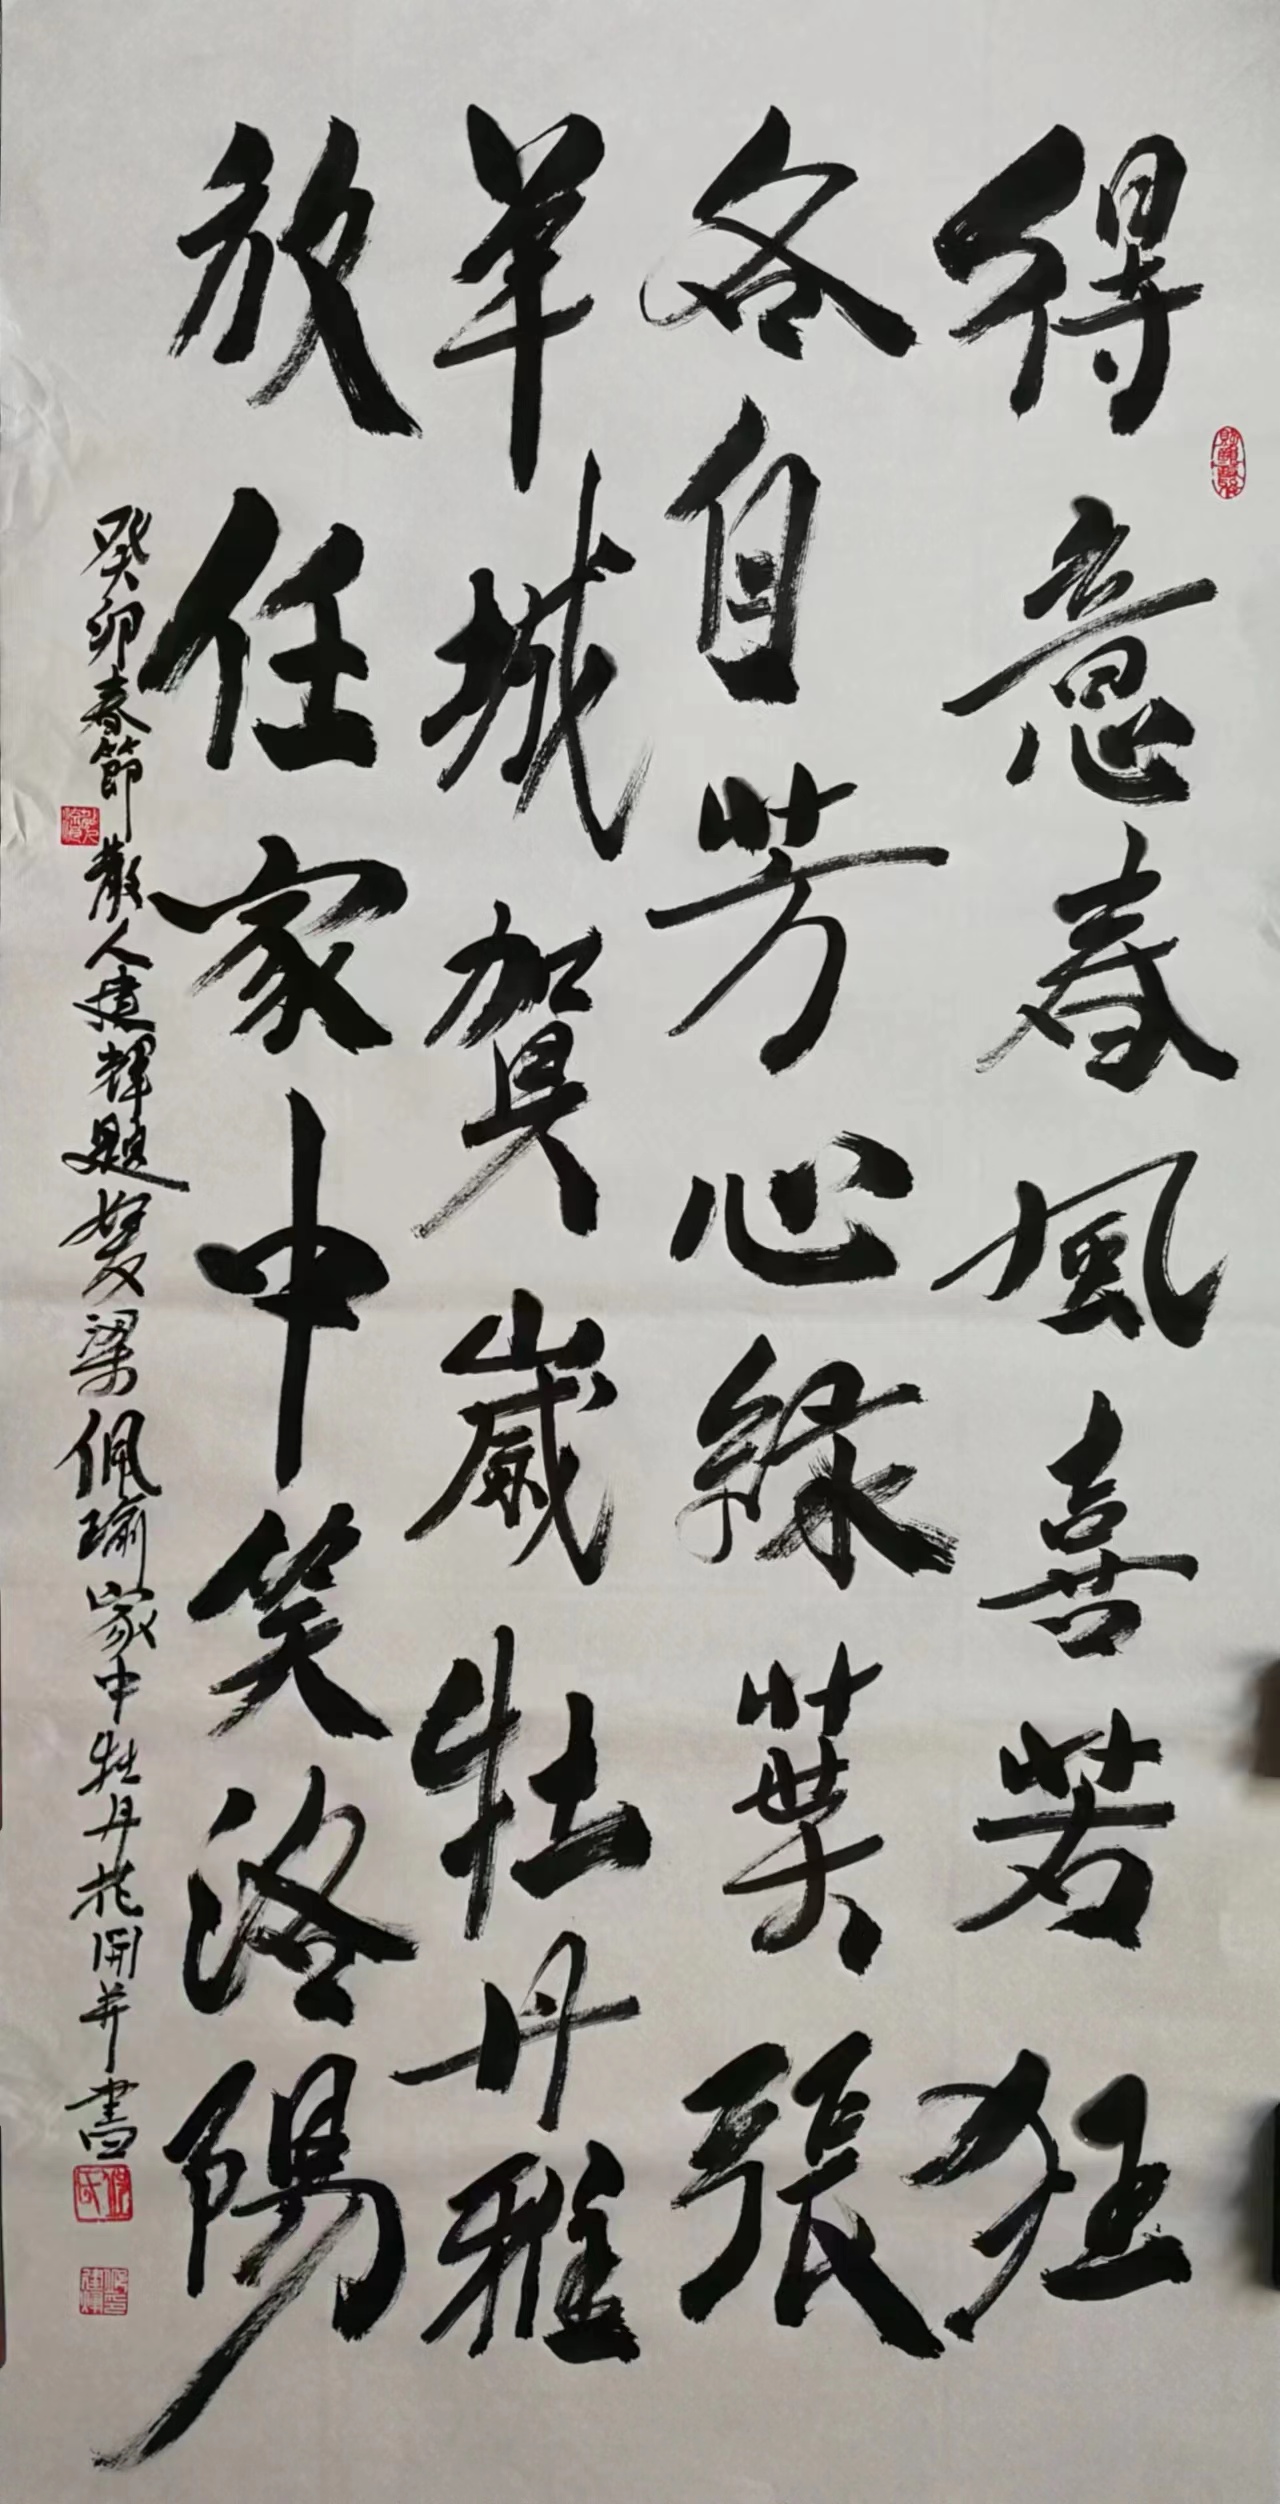 得意春風喜若狂
各自芳心綠葉張
羊城賀歲牡丹雅
放任家中笑洛陽
癸卯春節散人建輝題發梁佩瑜家中牡丹花開并書